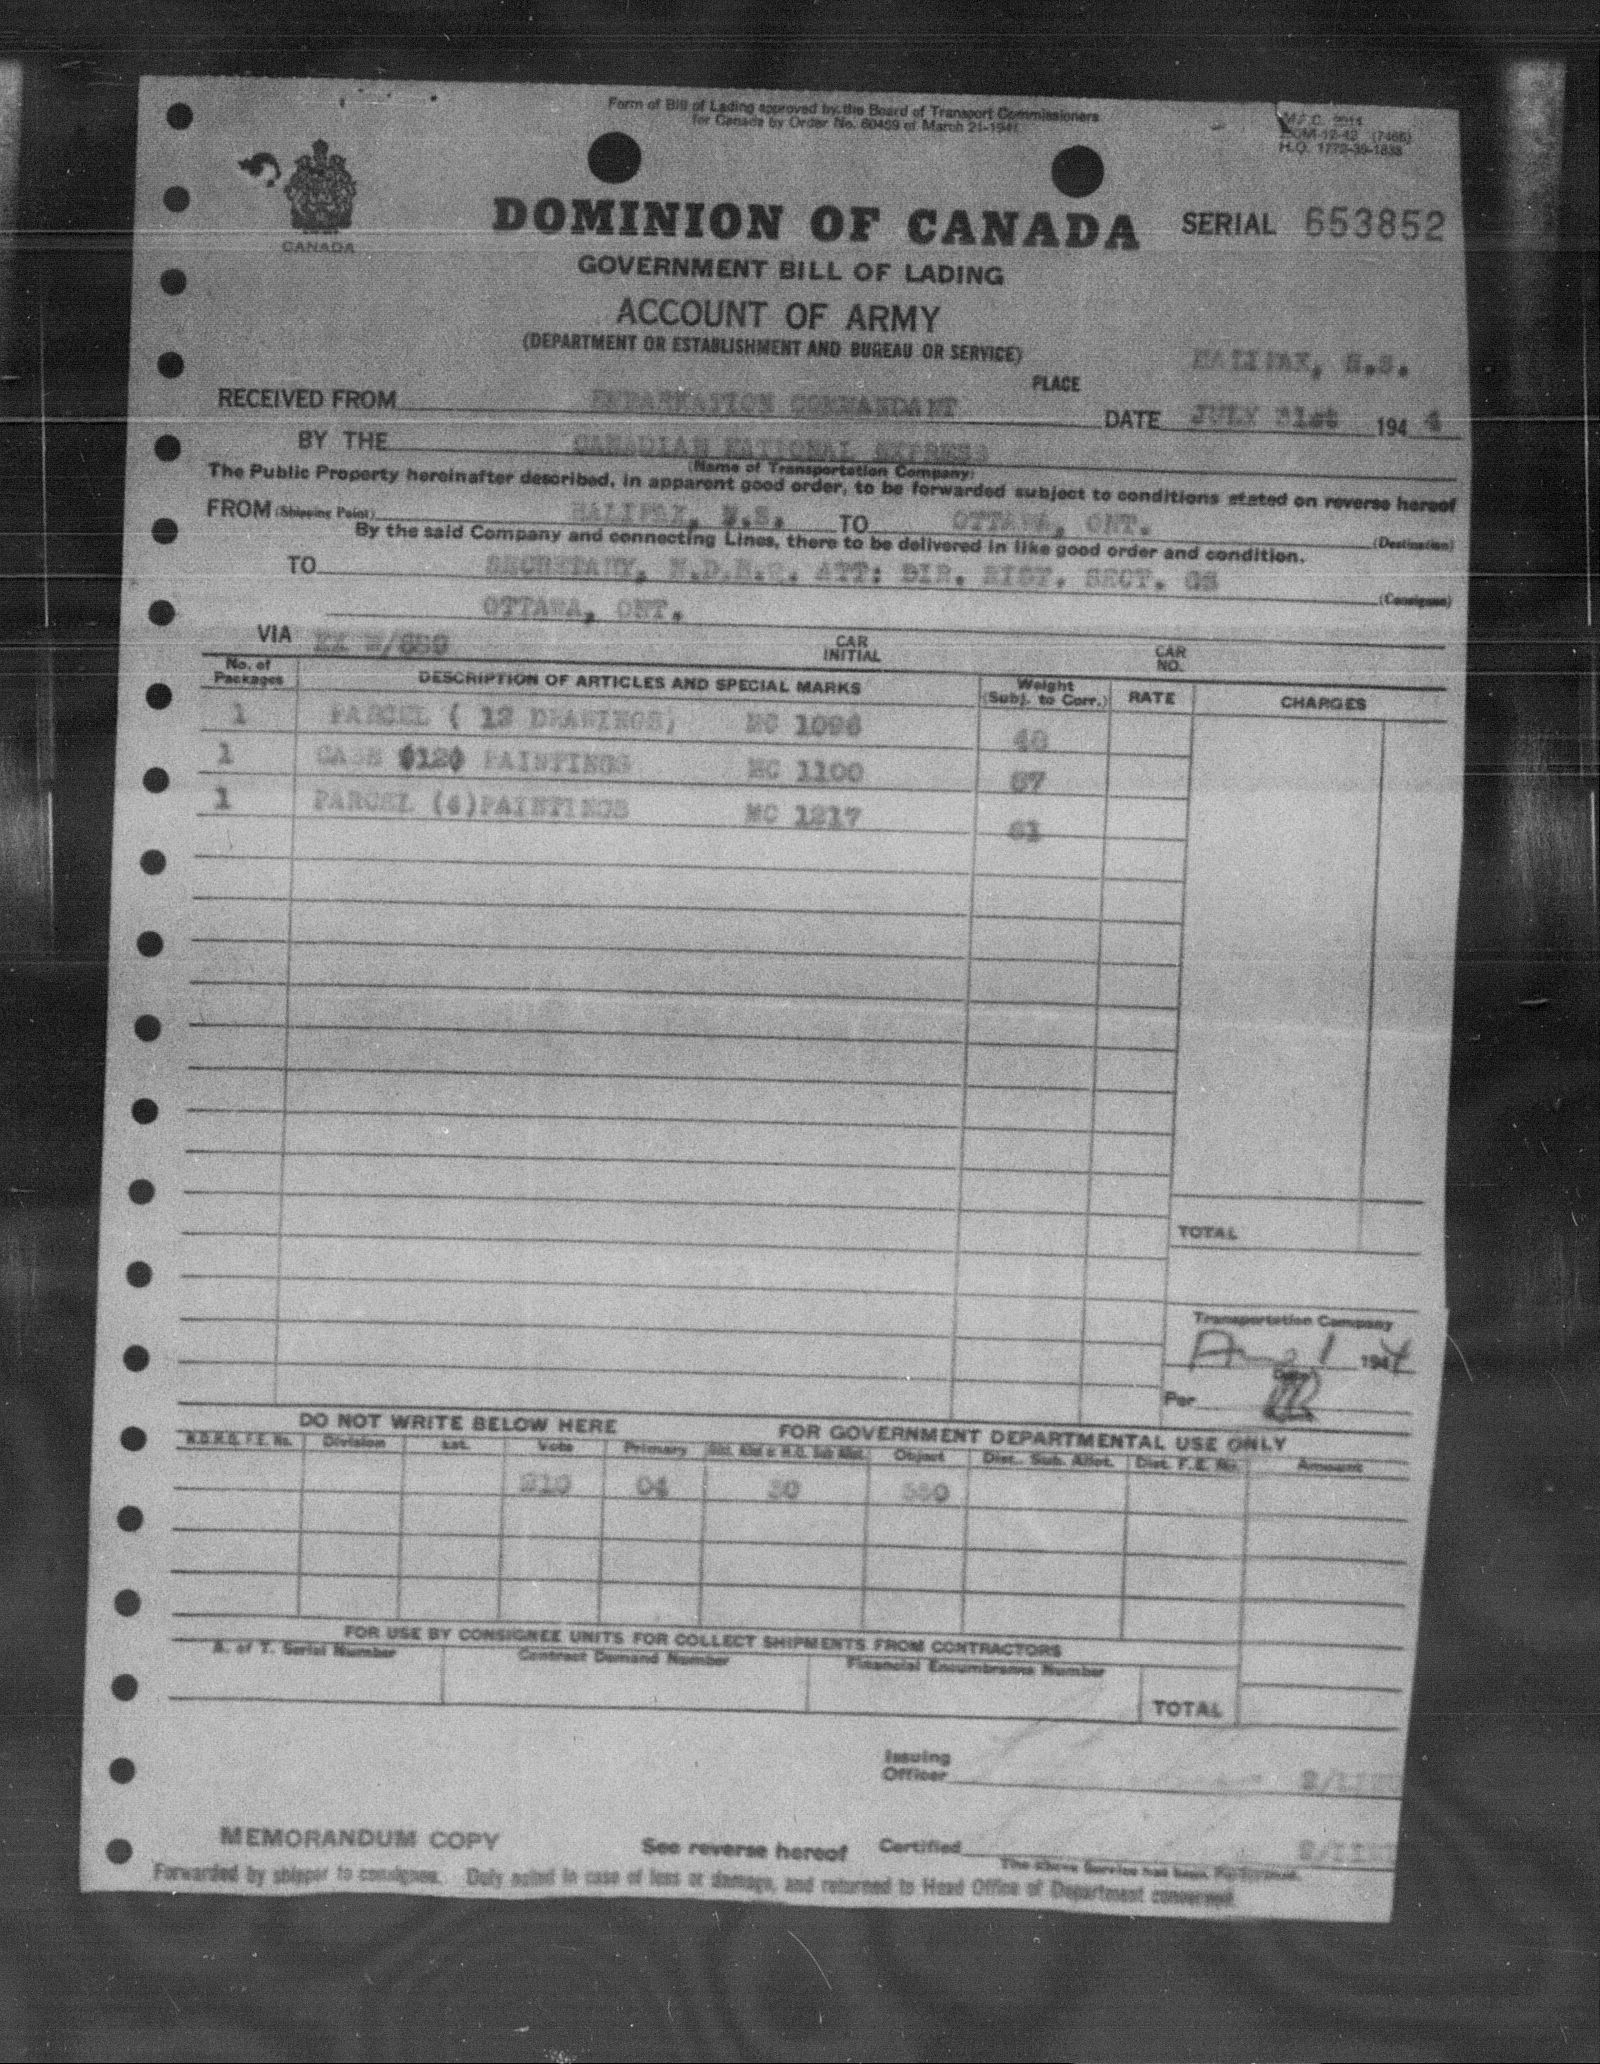 Form of Bill of Lading approved by the Board of Transport Commissioners
for Canada by Order No. 60459 of March 21-1941
H.Q. 1772-39-1838
CANADA
DOMINION OF CANADA
SERIAL 653852
GOVERNMENT BILL OF LADING
ACCOUNT OF ARMY
(DEPARTMENT OR ESTABLISHMENT AND BUREAU OR SERVICE)
PLACE HALIFAX, N.S.
RECEIVED FROM EMBARKATION COMMANDANT
DATE JULY 31st 1944
BY THE CANADIAN NATIONAL EXPRESS
(Name of Transportation Company)
The Public Property hereinafter described, in apparent good order, to be forwarded subject to conditions stated on reverse hereof
FROM (Shipping Point) HALIFAX, N.S. TO OTTAWA, ONT. (Destination)
By the said Company and connecting Lines, there to be delivered in like good order and condition.
TO SECRETARY, N.D.H.Q. ATT: DIR. HIST. SECT. GS (Consignee)
OTTAWA, ONT.
VIA EX W/650 CAR INITIAL CAR NO.
No. of Packages DESCRIPTION OF ARTICLES AND SPECIAL MARKS Weight (Subj. to Corr.) RATE CHARGES
1 PARCEL ( 12 DRAWINGS) MC 1096 40
1 CASE (12) PAINTINGS MC 1100 87
1 PARCEL (4)PAINTINGS MC 1217 61
TOTAL
Transportation Company
1 1944
Date
Per
DO NOT WRITE BELOW HERE FOR GOVERNMENT DEPARTMENTAL USE ONLY
N.D.H.Q. F.E. No. Division Est. Vote Primary Dist. Allot or H.Q. Sub Allot. Object Dist. Sub. Allot. Dist. F.E. No. Amount
210 04 30 550
FOR USE BY CONSIGNEE UNITS FOR COLLECT SHIPMENTS FROM CONTRACTORS
A. of T. Serial Number Contract Demand Number Financial Encumbrance Number
TOTAL
Issuing
Officer
MEMORANDUM COPY See reverse hereof Certified
The above Service has been Performed.
Forwarded by shipper to consignee. Duly noted in case of loss or damage, and returned to Head Office of Department concerned.